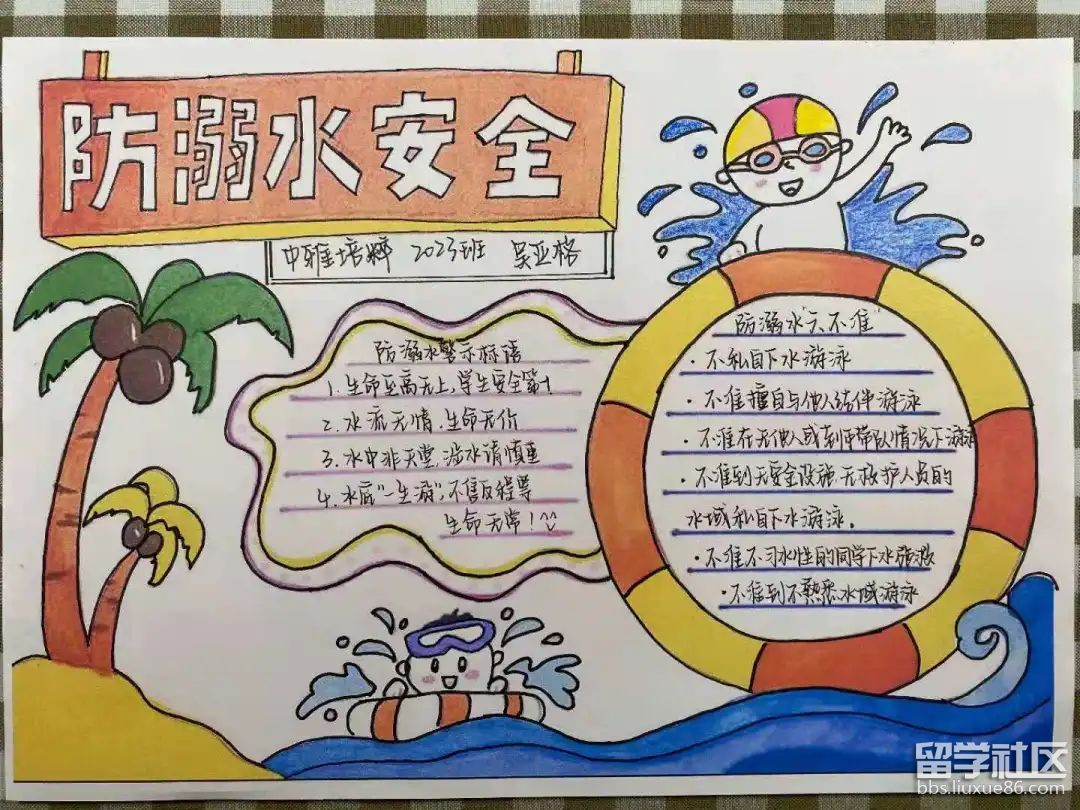 防溺水安全
中雅培粹 2023班 吴亚格
防溺水警示标语
1.生命至高无上,学生安全第1
2.水流无情.生命无价
3.水中非天堂,涉水请慎重
4.水底"一生游",不售返程票
生命无常!
防溺水"六不准"
·不私自下水游泳
·不准擅自与他人结伴游泳
·不准在无他人或老师带队情况下游泳
·不准到无安全设施,无救护人员的
水域私自下水游泳.
·不准不习水性的同学下水施救
·不准到不熟悉水域游泳
留学社区
bbs.liuxue86.com